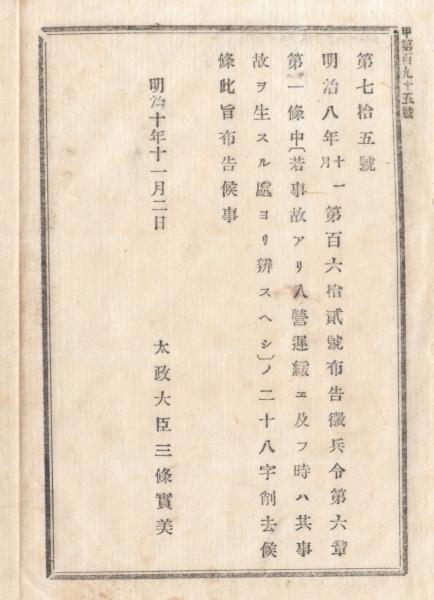 甲第百九十五號
第七拾五號
明治八年十一月第百六拾貳號布告徵兵令第六章
第一條中〔若事故アリ入營遲緩ニ及フ時ハ其事
故ヲ生スル處ヨリ辨スヘシ〕ノ二十八字削去候
條此旨布告候事
明治十年十一月二日
太政大臣三條實美